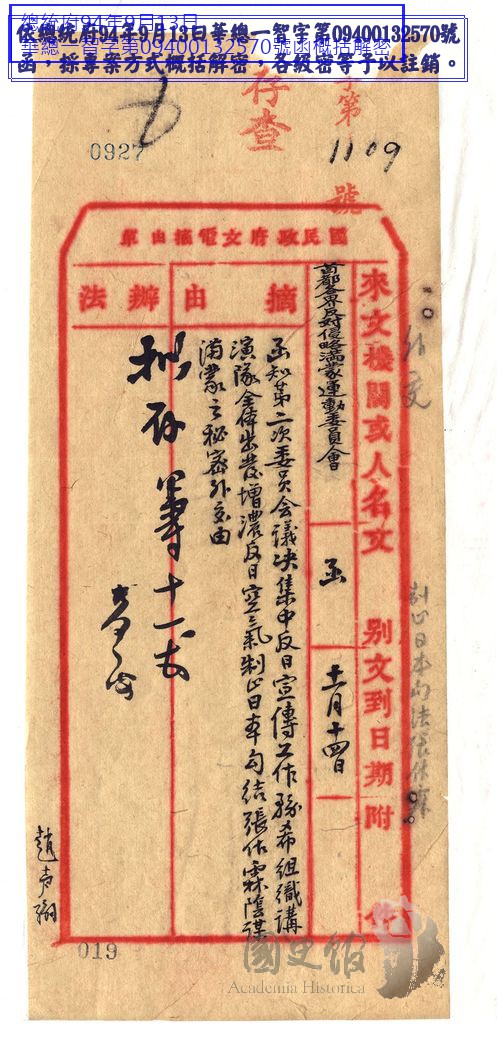 總統府94年9月13日
華總一智字第09400132570號函概括解密
依總統府94年9月13日華總一智字第09400132570號
函，採專案方式概括解密，各級密等予以註銷。
字第
1109
號
存查
0927
國民政府文電摘由單
來文機關或人名
文別
文到日期
附件
摘由
辦法
首都各界反對侵略滿蒙運動委員會
函
十二月十四日
函知第二次委員会議决集中反日宣傳工作務希組織講
演隊全体出發增濃反日空氣制止日本勾結張作霖陰謀
滿蒙之秘密外交由
擬存
十一
外交
制止日本勾結張作霖
019
國史館
Academia Historica